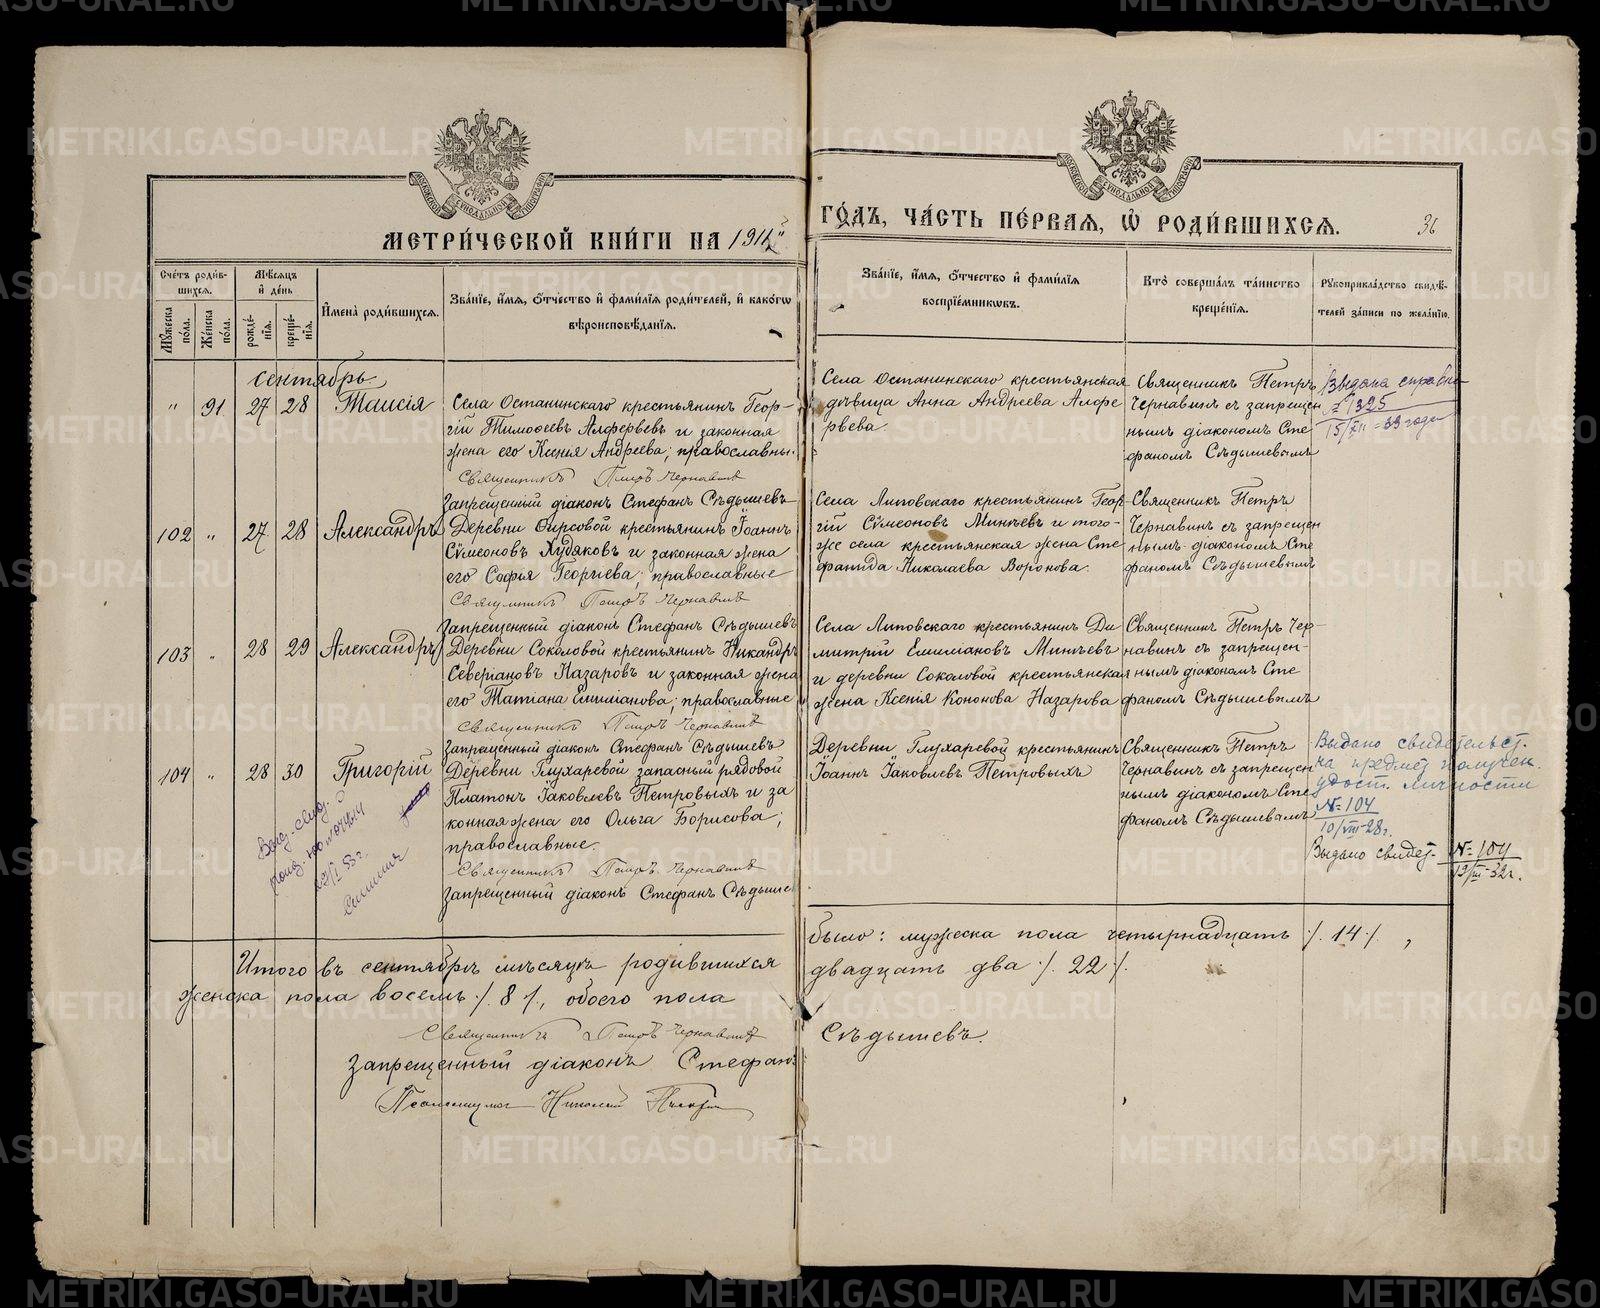 МЕТРИЧЕСКОЙ КНИГИ НА 1911
Счетъ родив-
шихся.
Мужеска пола.
Женска пола.
Мѣсяцъ и день
рожденія.
крещенія.
Имена родившихся.
Званіе, имя, отчество и фамилія родителей, и какогѡ
вѣроисповѣданія.
сентябрь
" 91 27 28 Таисія
Села Останинскаго крестьянинъ Геор-
гій Тимоѳеевъ Алферьевъ и законная
жена его Ксенія Андреева; православны.
Священникъ Петръ Чернавинъ
Запрещенный діаконъ Стефанъ Сѣдышевъ
102 " 27 28 Александръ
Деревни Фирсовой крестьянинъ Іоаннъ
Сѵмеоновъ Худяковъ и законная жена
его Софія Георгіева; православные
Священникъ Петръ Чернавинъ
Запрещенный діаконъ Стефанъ Сѣдышевъ
103 " 28 29 Александръ
Деревни Соколовой крестьянинъ Никандръ
Северіановъ Назаровъ и законная жена
его Татіана Емиліанова; православные
Священникъ Петръ Чернавинъ
Запрещенный діаконъ Стефанъ Сѣдышевъ
104 " 28 30 Григорій
Деревни Глухаревой запасный рядовой
Платонъ Іаковлевъ Петровыхъ и за
конная жена его Ольга Борисова;
православные.
Священникъ Петръ Чернавинъ
Запрещенный діаконъ Стефанъ Сѣдыше
Итого въ сентябрѣ мѣсяцѣ родившихся
женска пола восемь ./. 8 ./., обоего пола
Священникъ Петръ Чернавинъ
Запрещенный діаконъ Стефанъ
Псаломщикъ Николай
ГОДЪ, ЧАСТЬ ПЕРВАЯ, Ѡ РОДИВШИХСЯ.
36
Званіе, имя, отчество и фамилія
воспріемниковъ.
Кто совершалъ таинство
крещенія.
Рукоприкладство свидѣ-
телей записи по желанію.
Села Останинскаго крестьянская
дѣвица Анна Андреева Алфе
рьева.
Священникъ Петръ
Чернавинъ съ запрещен
нымъ діакономъ Сте
фаномъ Сѣдышевымъ
Выдана справка
№ 1325
15/XII-39 года
Села Липовскаго крестьянинъ Геор-
гій Сѵмеоновъ Минѣевъ и того-
же села крестьянская жена Сте
фанида Николаева Воронова.
Священникъ Петръ
Чернавинъ съ запрещен
нымъ діакономъ Сте
фаномъ Сѣдышевымъ
Села Липовскаго крестьянинъ Ди
митрій Емиліановъ Минѣевъ
и деревни Соколовой крестьянская
жена Ксенія Кононова Назарова
Священникъ Петръ Чер-
навинъ съ запрещен-
нымъ діакономъ Сте
фаномъ Сѣдышевымъ
Деревни Глухаревой крестьянинъ
Іоаннъ Іаковлевъ Петровыхъ
Священникъ Петръ
Чернавинъ съ запрещен
нымъ діакономъ Сте
фаномъ Сѣдышевымъ
Выдано свидетельст.
на предмет получен.
удост. личности
№ 104
10/VIII-28г.
Выдано свидет. № 104
19/III-32г.
было: мужеска пола четырнадцать ./. 14 ./. ,
двадцать два ./. 22 ./.
Сѣдышевъ.
METRIKI.GASO-URAL.RU